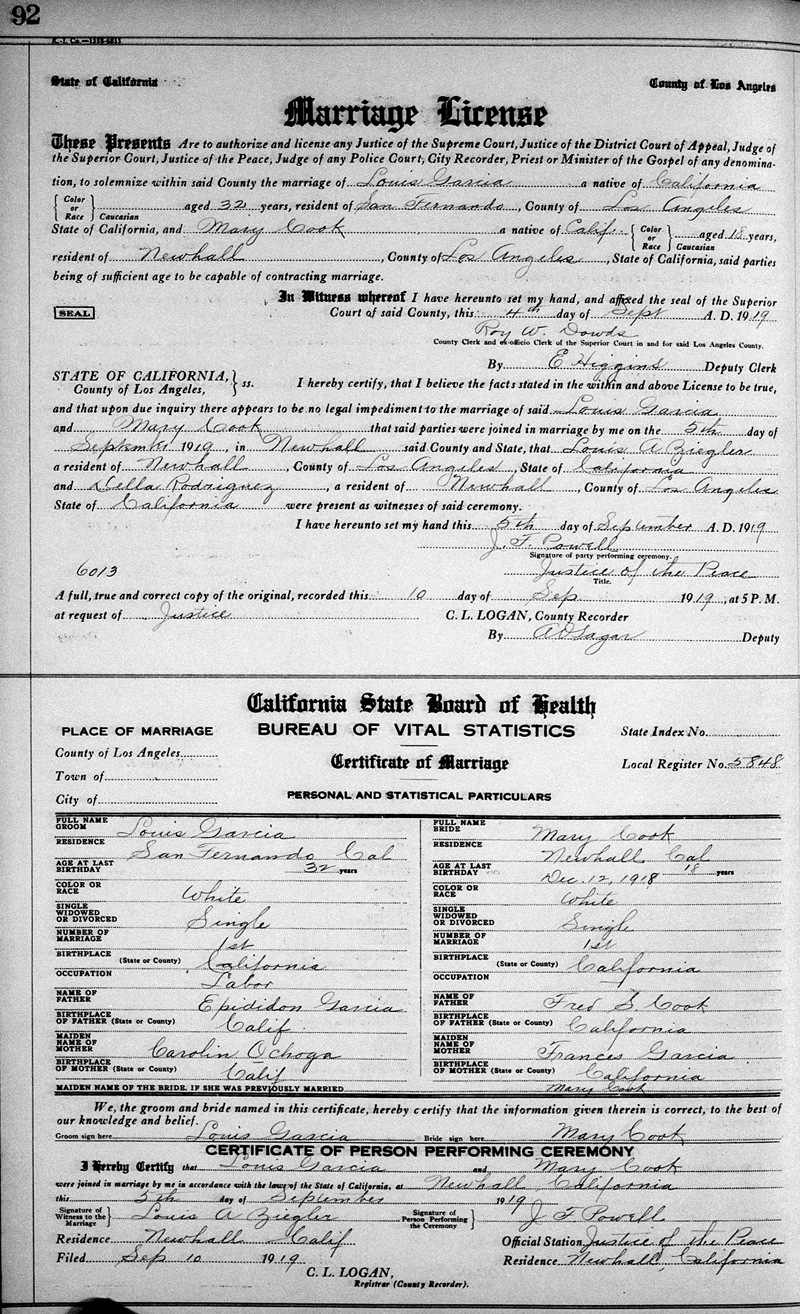 92
State of California County of Los Angeles
Marriage License
These Presents Are to authorize and license any Justice of the Supreme Court, Justice of the District Court of Appeal, Judge of
the Superior Court, Justice of the Peace, Judge of any Police Court, City Recorder, Priest or Minister of the Gospel of any denomina-
tion, to solemnize within said County the marriage of Louis Garcia a native of California
{Color or Race} Caucasian aged 32 years, resident of San Fernando, County of Los Angeles
State of California, and Mary Cook a native of Calif. {Color or Race} Caucasian aged 18 years,
resident of Newhall, County of Los Angeles, State of California, said parties
being of sufficient age to be capable of contracting marriage.
In Witness whereof I have hereunto set my hand, and affixed the seal of the Superior
SEAL Court of said County, this 4th day of Sept A. D. 1919
Roy W. Dowds
County Clerk and ex-officio Clerk of the Superior Court in and for said Los Angeles County.
By E Higgins Deputy Clerk
STATE OF CALIFORNIA, County of Los Angeles, } ss. I hereby certify, that I believe the facts stated in the within and above License to be true,
and that upon due inquiry there appears to be no legal impediment to the marriage of said Louis Garcia
and Mary Cook that said parties were joined in marriage by me on the 5th day of
September 1919, in Newhall said County and State, that Louis A Ziegler
a resident of Newhall, County of Los Angeles, State of California
and Della Rodriguez, a resident of Newhall, County of Los Angeles
State of California were present as witnesses of said ceremony.
I have hereunto set my hand this 5th day of September A. D. 1919
J. F. Powell
Signature of party performing ceremony.
6013 Justice of the Peace
Title.
A full, true and correct copy of the original, recorded this 10 day of Sep 1919, at 5 P. M.
at request of Justice C. L. LOGAN, County Recorder
By Deputy
California State Board of Health
PLACE OF MARRIAGE BUREAU OF VITAL STATISTICS State Index No.
County of Los Angeles Certificate of Marriage Local Register No. 5848
Town of
City of PERSONAL AND STATISTICAL PARTICULARS
FULL NAME GROOM Louis Garcia FULL NAME BRIDE Mary Cook
RESIDENCE San Fernando Cal RESIDENCE Newhall, Cal
AGE AT LAST BIRTHDAY 32 years AGE AT LAST BIRTHDAY Dec. 12, 1918 18 years
COLOR OR RACE White COLOR OR RACE White
SINGLE WIDOWED OR DIVORCED Single SINGLE WIDOWED OR DIVORCED Single
NUMBER OF MARRIAGE 1st NUMBER OF MARRIAGE 1st
BIRTHPLACE (State or County) California BIRTHPLACE (State or County) California
OCCUPATION Labor OCCUPATION
NAME OF FATHER Epididon Garcia NAME OF FATHER Fred S Cook
BIRTHPLACE OF FATHER (State or County) Calif BIRTHPLACE OF FATHER (State or County) California
MAIDEN NAME OF MOTHER Carolin Ochoga MAIDEN NAME OF MOTHER Frances Garcia
BIRTHPLACE OF MOTHER (State or County) Calif BIRTHPLACE OF MOTHER (State or County) California
MAIDEN NAME OF THE BRIDE, IF SHE WAS PREVIOUSLY MARRIED Mary Cook
We, the groom and bride named in this certificate, hereby certify that the information given therein is correct, to the best of
our knowledge and belief.
Groom sign here Louis Garcia Bride sign here Mary Cook
CERTIFICATE OF PERSON PERFORMING CEREMONY
I Hereby Certify that Louis Garcia and Mary Cook
were joined in marriage by me in accordance with the laws of the State of California, at Newhall, California
this 5th day of September 1919
Signature of Witness to the Marriage } Louis A Ziegler Signature of Person Performing the Ceremony } J F Powell
Residence Newhall Calif Official Station Justice of the Peace
Filed Sep 10 1919 Residence Newhall, California
C. L. LOGAN,
Registrar (County Recorder).